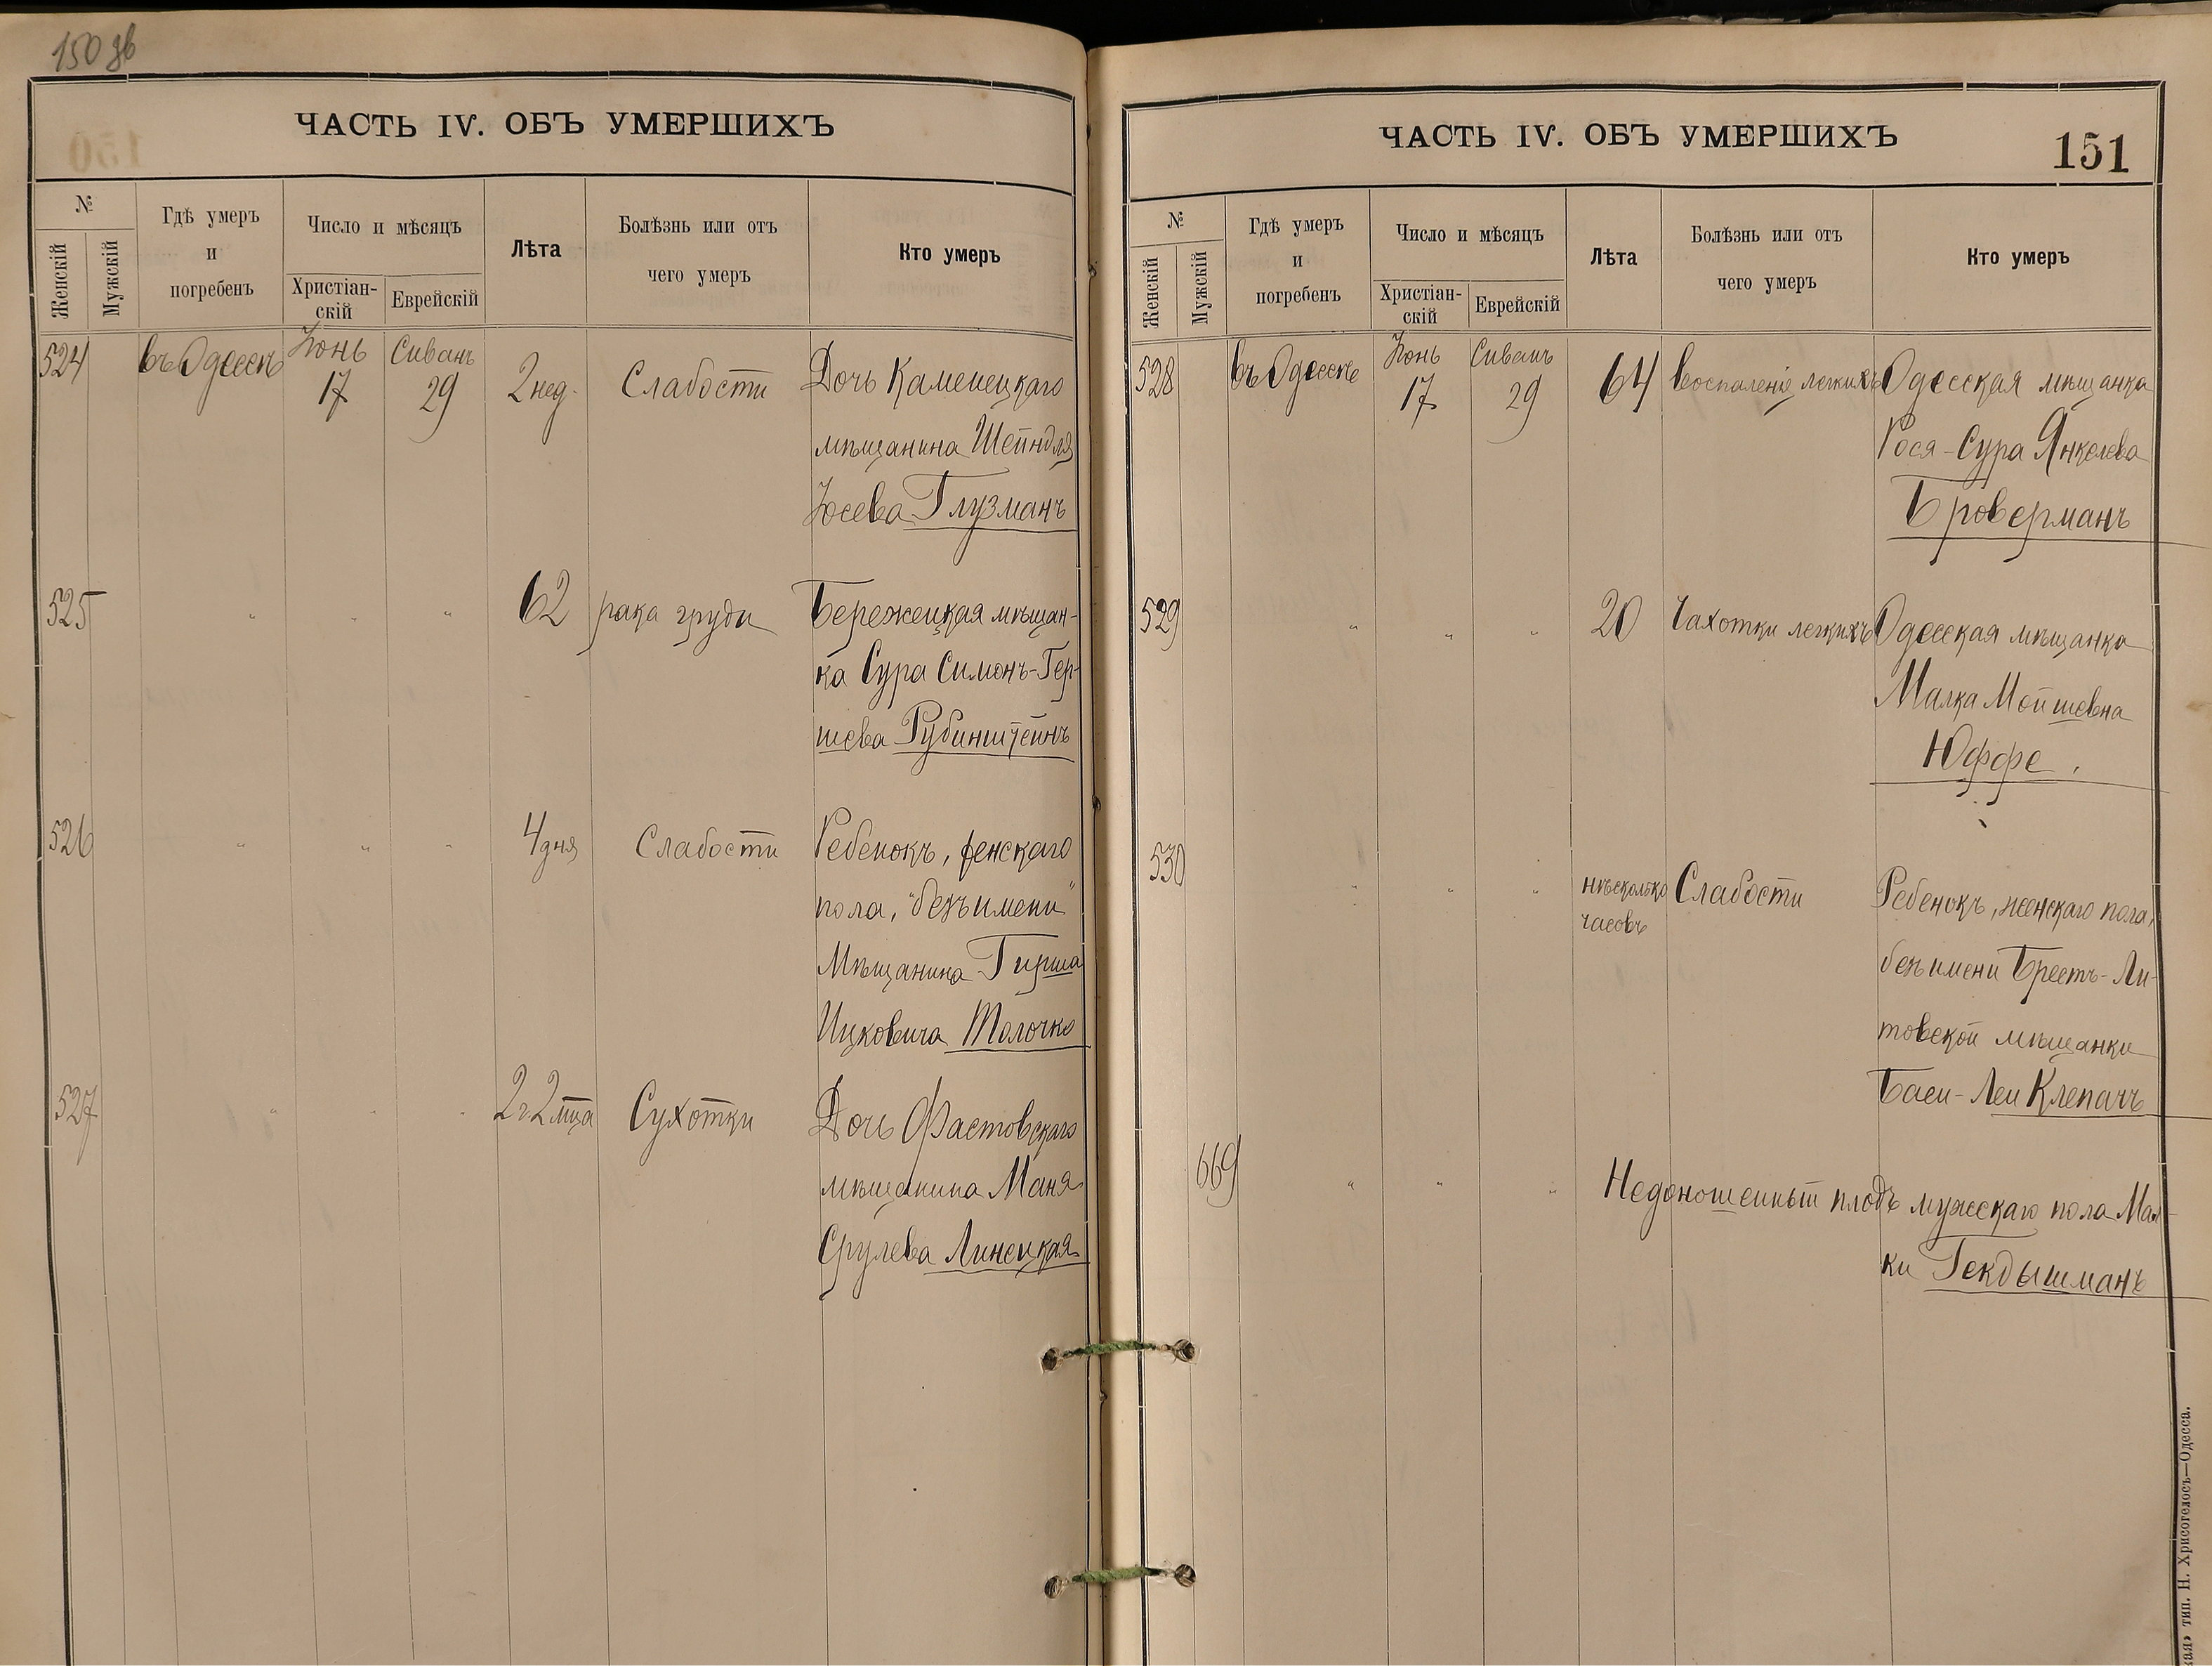 150 об
ЧАСТЬ IV. ОБЪ УМЕРШИХЪ
№
Женскій
Мужскій
Гдѣ умеръ
и
погребенъ
Число и мѣсяцъ
Христіан-
скій
Еврейскій
Лѣта
Болѣзнь или отъ
чего умеръ
Кто умеръ
524 въ Одессѣ Іюнь 17 Сиванъ 29 2 нед. Слабости Дочь Каменецкаго
мѣщанина Шейндля
Іосева Глузманъ
525 " " " 62 рака груди Бережецкая мѣщан-
ка Сура Симонъ-Гер-
шева Рубинштейнъ
526 " " " 4 дня Слабости Ребенокъ, женскаго
пола, "безъ имени"
Мѣщанина Герша
Ицковича Толочко
527 " " " 2 г 2 мца Сухотки Дочь Фастовскаго
мѣщанина Маня
Срулева Линецкая
ЧАСТЬ IV. ОБЪ УМЕРШИХЪ
151
№
Женскій
Мужскій
Гдѣ умеръ
и
погребенъ
Число и мѣсяцъ
Христіан-
скій
Еврейскій
Лѣта
Болѣзнь или отъ
чего умеръ
Кто умеръ
528 въ Одессѣ Іюнь 17 Сиванъ 29 64 Воспаленіе легкихъ Одесская мѣщанка
Рося-Сура Янкелева
Броверманъ
529 " " " 20 Чахотки легкихъ Одесская мѣщанка
Малка Мойшевна
Юффе.
530 " " " нѣсколько часовъ Слабости Ребенокъ, женскаго пола,
безъ имени Брестъ-Ли-
товской мѣщанки
Баси-Леи Клепачъ
669 " " " Недоношенный плодъ мужескаго пола Мал-
ки Гекдышманъ
кая» тип. Н. Хрисогелосъ—Одесса.